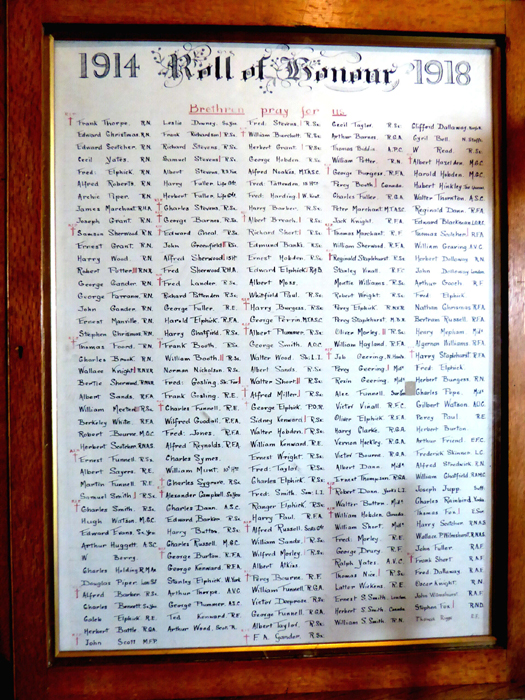 1914 Roll of Honour 1918
Brethren pray for us
Frank Thorpe. R.N.
Edward Christmas. R.N.
Edward Scutcher. R.N.
Cecil Yates. R.N.
Fred. Elphick. R.N.
Alfred Roberts. R.N.
Archie Piper. R.N.
James Marchant. R.H.A.
Joseph Grant. R.N.
Samson Sherwood R.N.
Ernest Grant. R.N.
Harry Wood. R.N.
Robert Potter R.N.V.R.
George Gander. R.N.
George Farrann. R.N.
John Lander. R.N.
Ernest Manville. R.N.
Stephen Christmas. R.N.
Thomas Foord. R.N.
Charles Brook. R.N.
Wallace Knight R.N.V.R.
Bertie Sherwood. R.N.V.R.
Albert Sands. R.F.A.
William Morton R.Sx.
Berkeley White. R.F.A.
Robert Bourne. M.G.C.
Herbert Scutcher. R.N.A.S.
Ernest Funnell. R.Sx.
Albert Sayers. R.E.
Martin Funnell. R.E.
Samuel Smith R.Sx.
Charles Smith. R.Sx.
Hugh Watson. M.G.C.
Edward Evans.
Arthur Huggett. A.S.C.
W Berry.
Charles Holding. R.M.A.
Douglas Piper
Alfred Barber. R.Sx.
Charles Bennett.
Caleb Elphick R.E.
Herbert Battle R.G.A.
John Scott M.F.P.
Leslie Downey.
Frank Richardson R.Sx.
Richard Stevens. R.Sx.
Samuel Stevens R.Sx.
Albert Stevens.
Harry Fuller.
Herbert Fuller.
Charles Stevens. R.Sx.
George Barns. R.Sx.
Edward Gneal. R.Sx.
John Greenfield R.Sx.
Alfred Sherwood
Fred Sherwood R.H.A.
Fred Lander. R.Sx.
Richard Pattenden R.Sx.
George Fuller. R.E.
Harold Elphick R.F.A.
Harry Chatfield. R.Sx.
Frank Booth. R.Sx.
William Booth R.Sx.
Norman Nicholson R.Sx.
Fred. Gosling
Frank Gosling. R.E.
Charles Funnell. R.E.
Wilfred Goodsell. R.F.A.
Fred. Jones. R.F.A.
Alfred Reynolds. R.F.A.
Charles Symes.
William Mount.
Charles Sygrove. R.Sx.
Alexander Campbell.
Charles Dann. A.S.C.
Edward Barber. R.Sx.
Harry Button. R.Sx.
Charles Russell. M.G.C.
George Burton. R.F.A.
George Kenward R.F.A.
Stanley Elphick.
Arthur Thorpe. A.V.C.
George Plummer. A.S.C.
Ted Kenward R.E.
Arthur Wood.
Fred. Stevens. R.Sx.
William Burchett. R.Sx.
Herbert Grant R.Sx.
George Hobden R.Sx.
Alfred Noakes. M.T.A.S.C.
Fred. Tattenden
Fred. Harding
Harry Barber. R.Sx.
Albert Breach R.Sx.
Richard Short R.Sx.
Edmund Banks. R.Sx.
Ernest Hobden. R.Sx.
Edward Elphick.
Albert Moss.
Whitfield Paul. R.Sx.
Harry Burgess. R.Sx.
George Perrin M.T.A.S.C.
Albert Plummer. R.Sx.
George Smith. A.O.C.
Walter Wood.
Albert Sands. R.Sx.
Walter Short R.Sx.
Alfred Miller R.Sx.
George Elphick. P.O.R.
Sidney Kenward R.Sx.
Walter Hobden. R.Sx.
William Kenward. R.E.
Ernest Wright. R.Sx.
Fred. Taylor. R.Sx.
Charles Elphick. R.Sx.
Fred. Smith
Ranger Elphick. R.Sx.
Harry Paul. R.F.
Alfred Russell.
William Sands. R.Sx.
Wilfred Morley. R.Sx.
Albert Atkins.
Percy Bourne. R.F.
William Funnell. R.G.A.
Victor Deeprose. R.Sx.
George Funnell. R.G.A.
Albert Taylor. R.Sx.
F.A. Gander. R.Sx.
Cecil Taylor. R.Sx.
Arthur Barnes. R.G.A.
Thomas Biddle A.P.C.
William Potter. R.N.
George Burgess. R.F.A.
Percy Booth Canada.
Charles Fuller. R.G.A.
Peter Marchant. M.T.A.S.C.
Jack Knight. R.F.A.
Thomas Marchant. R.F.
William Sherwood. R.F.A.
Reginald Staplehurst R.Sx.
Stanley Knatt. R.F.C.
Martin Williams. R.Sx.
Robert Wright. R.Sx.
Percy Elphick. R.N.V.R.
Harry Staplehurst. R.Sx.
Oliver Morley. R.Sx.
William Hayland. R.F.A.
Job Geering.
Percy Geering
Rosin Geering. Mdx
Alex Funnell.
Victor Vinall. R.F.C.
Oliver Elphick. R.F.A.
Harry Clarke. R.G.A.
Vernon Harkley R.G.A.
Victor Bourne R.G.A.
Albert Dann. Mdx
Ernest Thompson. R.G.A.
Robert Dann.
Walter Button. Mdx
William Hobden. Canada.
William Short. Mdx
Fred. Morley. R.E.
George Drury R.F.
Ralph Yates. A.V.C.
Thomas Nice R.Sx.
Luther Wickens R.E.
Ernest S. Smith. London
Herbert S. Smith. Canada
William S. Smith. R.N.
Clifford Dallaway.
Cyril Bell. N. Staffs.
W Read. R.Sx.
Albert Hazelden M.G.C.
Harold Hobden. M.G.C.
Hubert Hinkley
Walter Thornton. A.S.C.
Reginald Dann. R.F.A.
Edward Blackman
Thomas Scutcher. R.F.A.
William Gearing A.V.C.
Herbert Dallaway. R.N.
John Dallaway London
Arthur Coates. R.F.
Fred Elphick
Nathan Gearaway R.F.A.
Bertram Russell. R.F.A.
Henry Mepham Mdx
Algernon Williams. R.F.A.
Harry Staplehurst R.F.A.
Fred. Elphick.
Herbert Burgess R.N.
Charles Pope. Mdx
Gilbert Watson. A.O.C.
Percy Paul. R.E.
Herbert Burton
Arthur Friend.
Frederick Skinner. L.C.
Alfred Studwick. R.N.
William Oldfield
Joseph Jupp
Charles Rainbird
Thomas Fox
Harry Scutcher. R.N.A.S.
Wallace P. Wilmshurst. R.N.A.S.
John Fuller. R.A.F.
Frank Short R.A.F.
Fred. Dallaway. R.A.F.
Edgar Knight. R.N.
John Wilmshurst. R.A.F.
Stephen Fox R.N.D.
Thomas Rigg